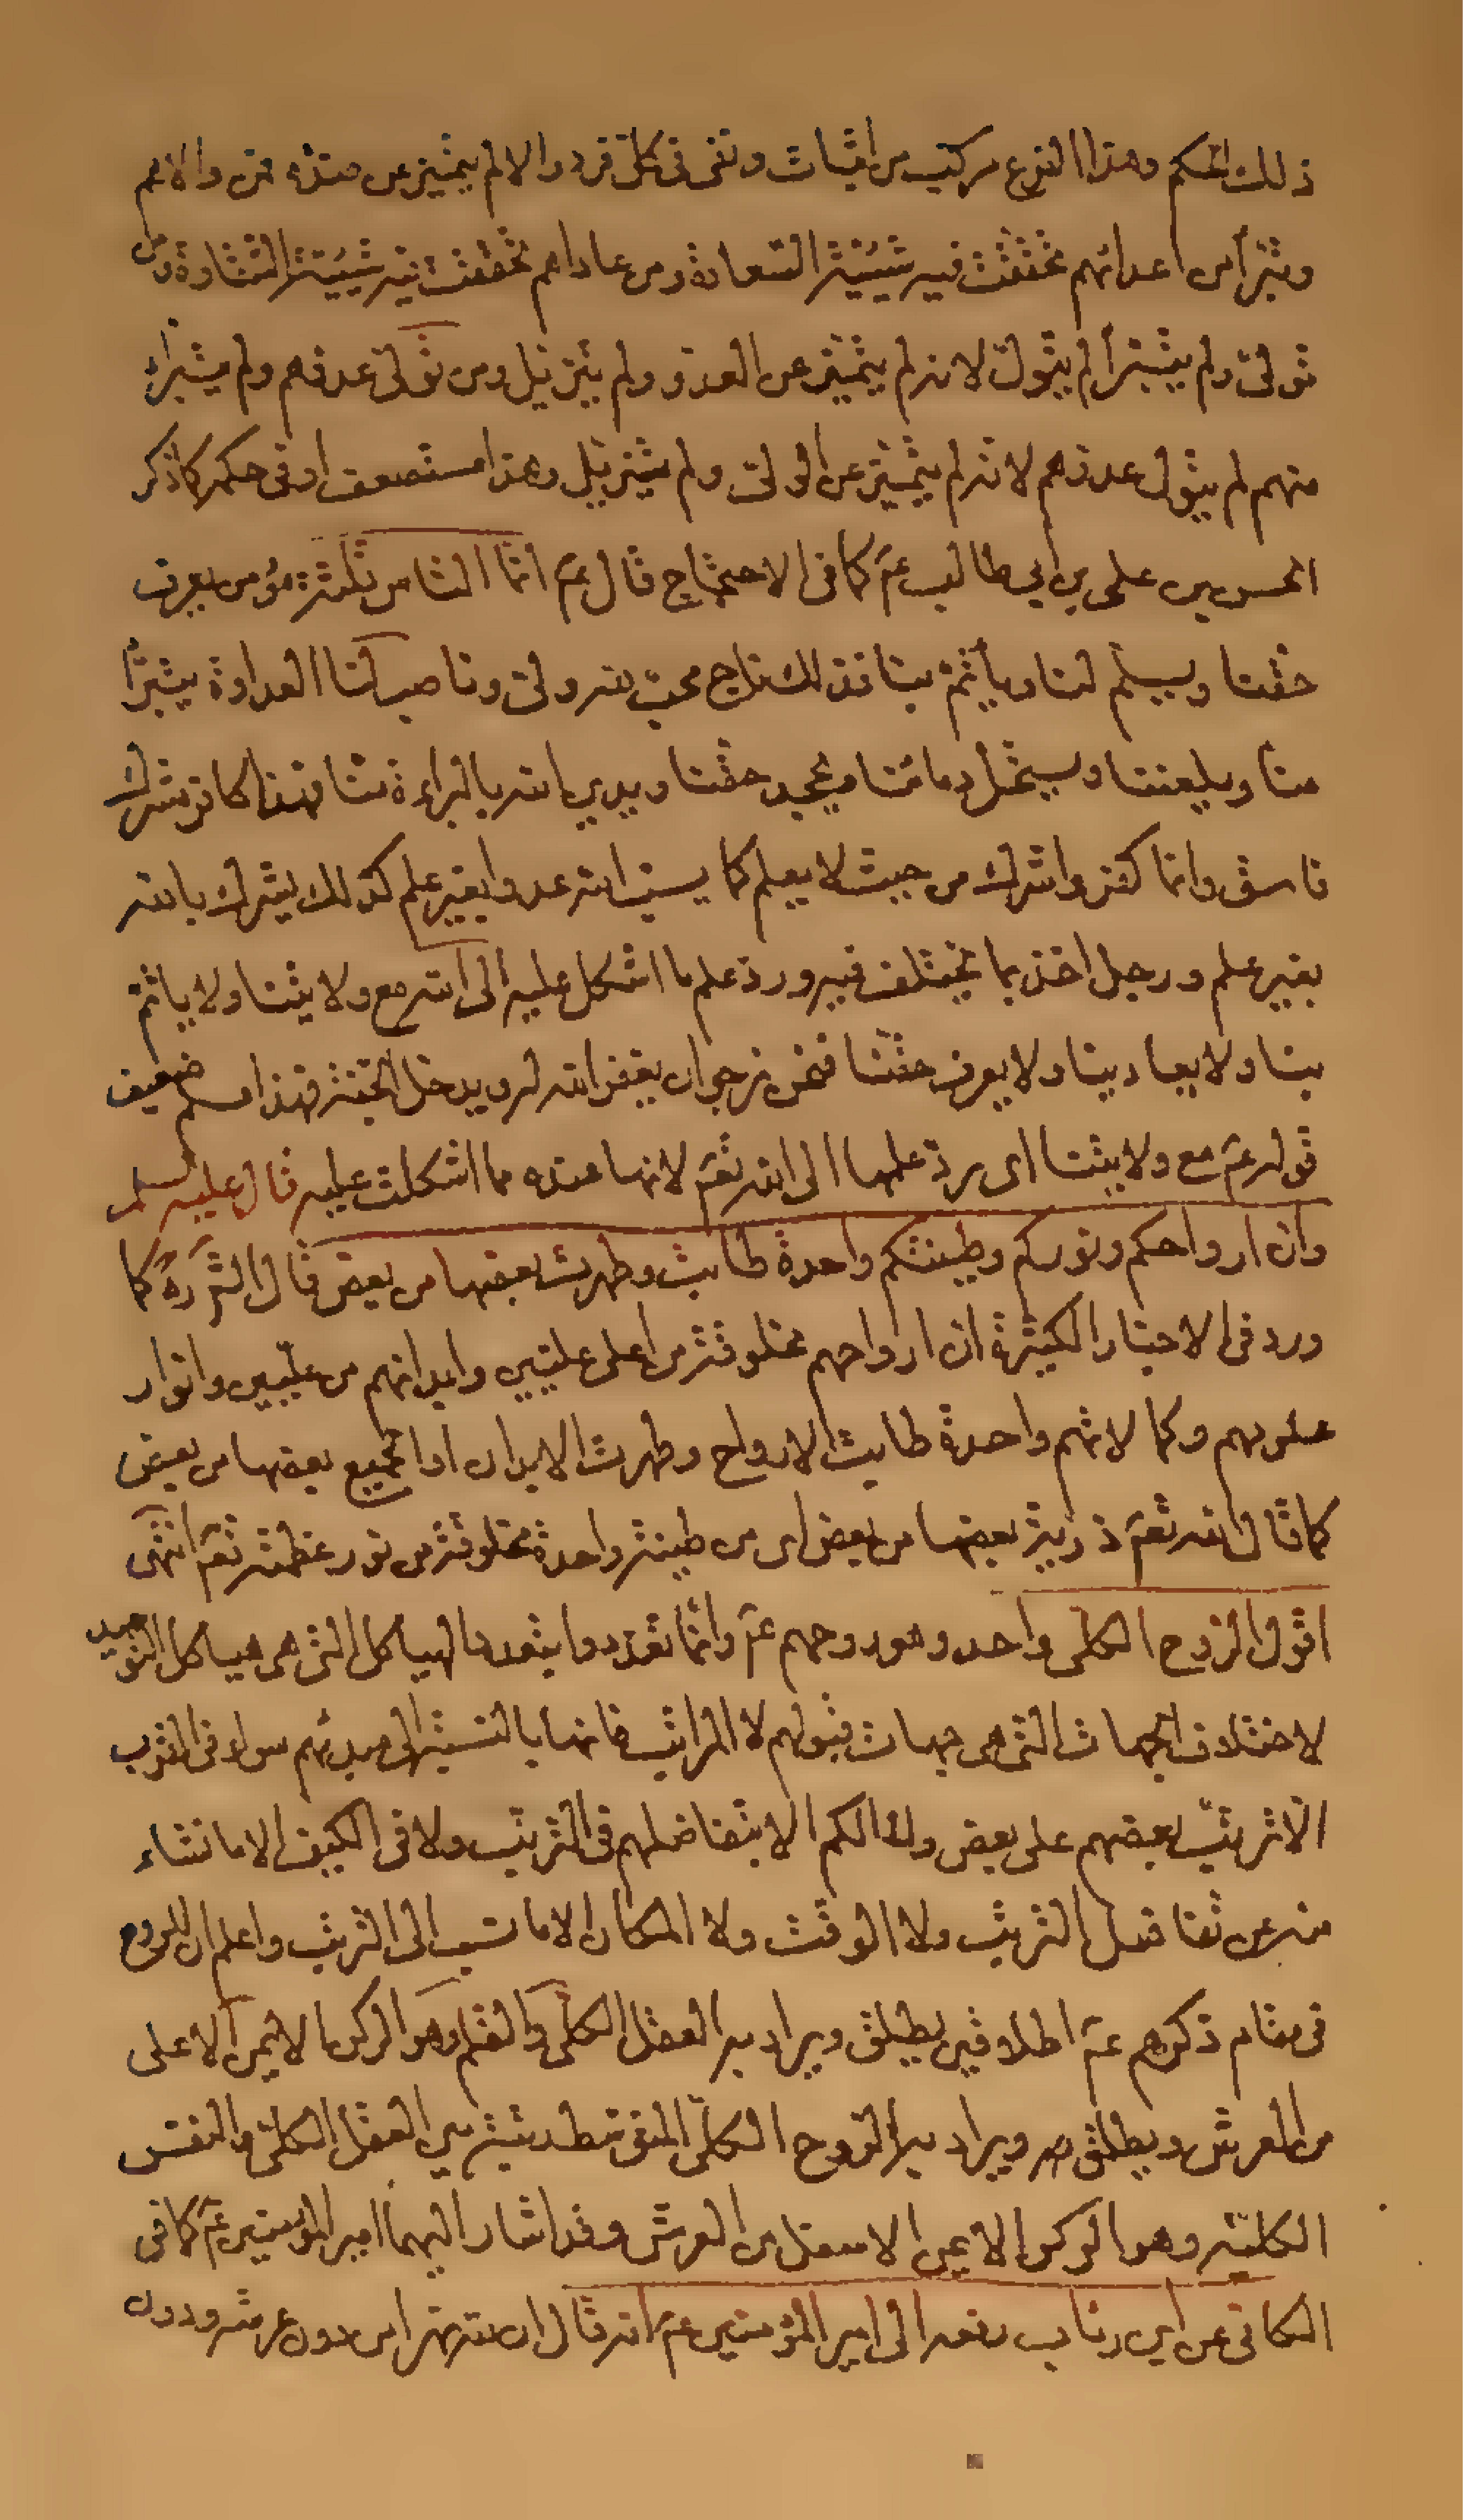 ذلك الحكم وهذا النوع مركب من اثبات ونفى فى كل فرد والا لم يتميز عن ضده فمن والاهم
وتبرأ من اعدائهم تحققت فيه شيئية السعادة ومن عاداهم تحققت فيه شيئية الشقاوة ومن
تولى ولم يتبرأ لم يتول لانه لم يتميز عن العدو ولم يتزيل ومن تولى عدوهم ولم يتبرأ
منهم لم يتول عدوهم لانه لم يتميز عن الولى ولم يتزيل وهذا مستضعف او فى حكمه كما ذكر
الحسن بن على بن ابي طالب ع كما فى الاحتجاج قال ع انما الناس ثلثة مؤمن يعرف
حقنا ويسلم لنا ويأتم بنا فذلك ناج محب لله ولى وناصب لنا العداوة يتبرأ
منا ويلعننا ويستحل دمائنا ويجحد حقنا ويدين الله بالبراءة منا فهذا كافر مشرك
فاسق وانما كفر واشرك من حيث لا يعلم كما يسبوا الله عدوا بغير علم كذلك يشرك بالله
بغير علم ورجل اخذ بما يختلف فيه ورد علم ما اشكل عليه الى الله مع ولايتنا ولا ياتم
بنا ولا يعادينا ولا يعرف حقنا فنحن نرجو ان يغفر الله له ويدخل الجنة فهذا مسلم ضعيف
قوله ع مع ولايتنا اى يرد علمها الى الله تع لانها عنده مما اشكلت عليه قال عليه السلم
وان ارواحكم ونوركم وطينتكم واحدة طابت وطهرت بعضها من بعض قال الش ره كما
ورد فى الاخبار الكثيرة ان ارواحهم مخلوقة من اعلى عليين وابدانهم من عليين وانوار
علومهم وكما لاتهم واحدة طابت الارواح وطهرت الابدان او الجميع بعضها من بعض
كما قال الله تع ذرية بعضها من بعض اى من طينة واحدة مخلوقة من نور عظمته تع انتهى
اقول الروح الكلى واحد وهو روحهم ع وانما تعددوا بتعدد الهياكل التى هى هياكل التوحيد
لاختلاف الجهات التى هى جهات قبولهم لا المراتب فانها بالنسبة الى مبدئهم سواء فى القرب
الا ترتب بعضهم على بعض ولا الكم الا بتفاضلهم فى الترتيب ولا فى الكيف الا ما نشاء
منه عن تفاضل الترتيب ولا الوقت ولا المكان الا ما نسب الى الترتيب واعلم ان للروح
فى مقام ذكرهم ع اطلاقين يطلق ويراد به العقل الكلى والقلم وهو الركن الايمن الاعلى
من العرش ويطلق ويراد به الروح الكلى المتوسط بين العقل الكلى والنفس
الكلية وهو الركن الايمن الاسفل من العرش وقد اشار اليهما امير المؤمنين ع كما فى
الكافى عن ابن رئاب رفعه الى امير المؤمنين ع انه قال ان لله نهرا من دون عرشه ودون